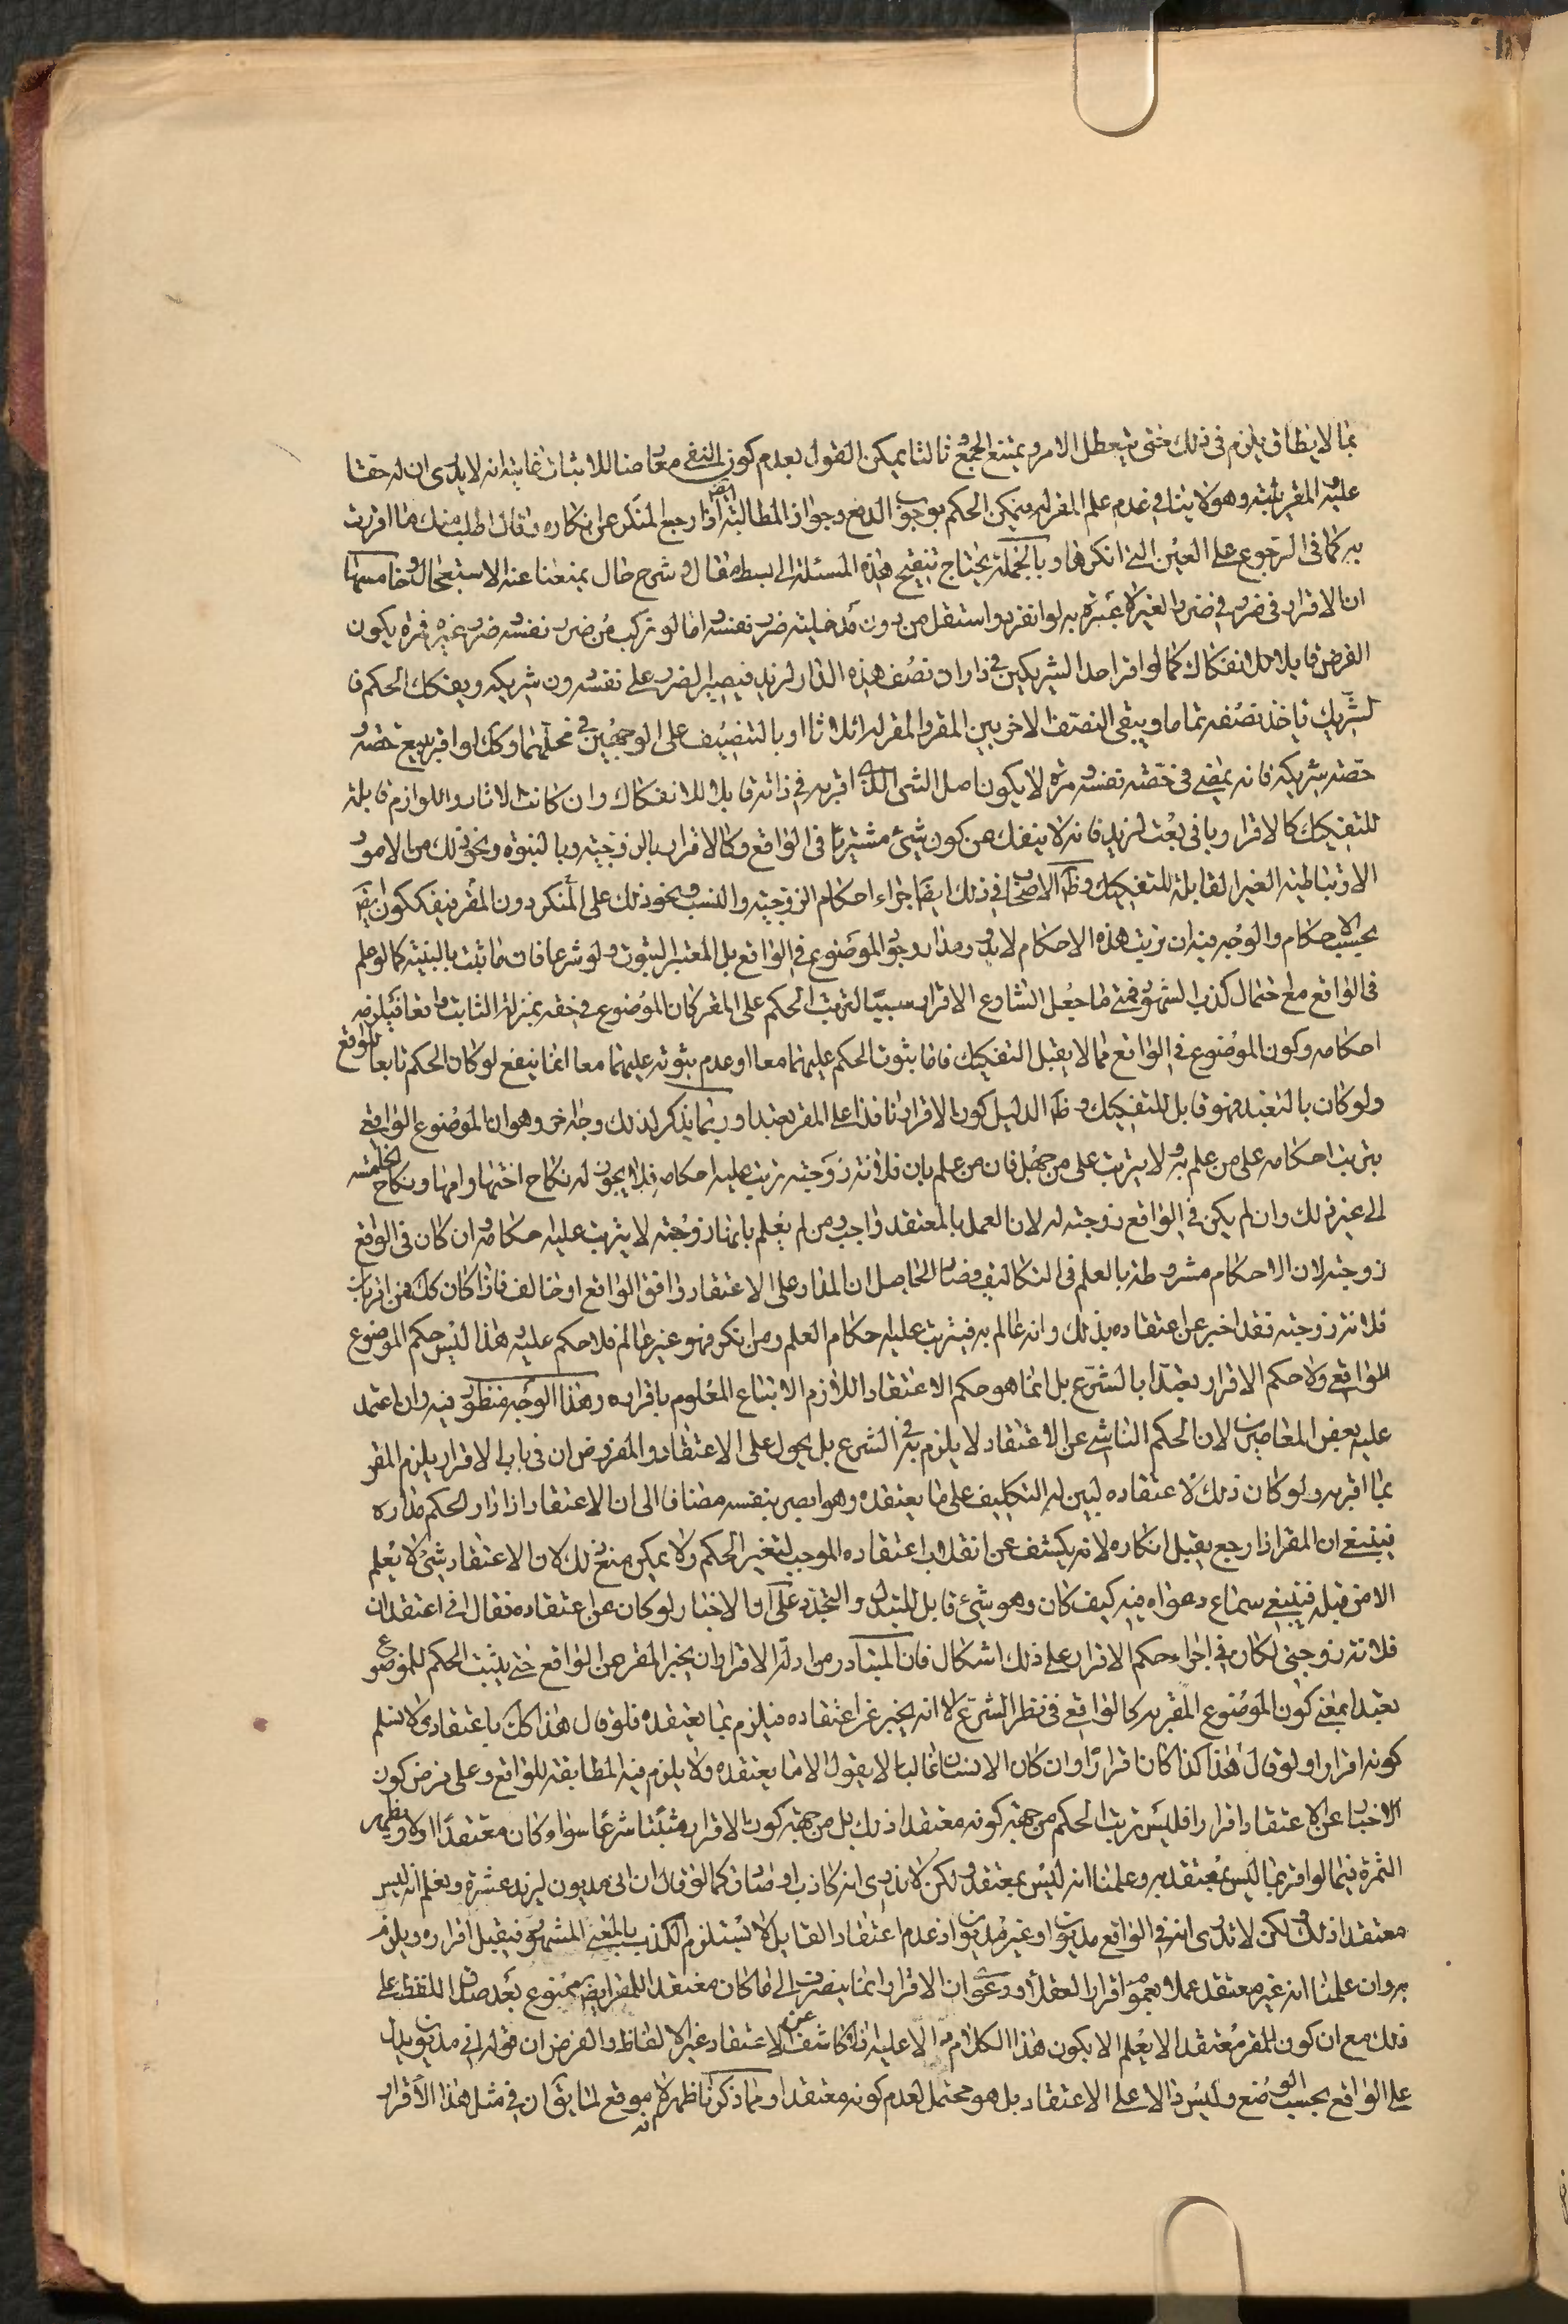 بما لا يطاق يلزم في ذلك حتى يتعطل الامر ويمتنع الجمع ثالثا يمكن القول بعدم كون النفي معارضا للاثبات غايته انه لا يدري ان له حقا
عليه المقر يثبته وهو لا ينافي عدم علم المقر له فيمكن الحكم بوجوب الدفع وجواز المطالبة ايضا اذا رجع المنكر عن انكاره وقال اطلب منك ما اقررت
به كما في الرجوع على العين التي انكرها وبالجملة يحتاج تنقيح هذه المسئلة الى بسط مقال وشرح حال يمنعنا عنه الاستعجال وخامسها
ان الاقرار في ضرره في ضرر الغير لا عبرة به لو انفرد واستقل من دون مدخلية ضرر نفسه اما لو تركب من ضرر نفسه وضرر غيره فتره يكون
الفرض قابلا للانفكاك كما لو اقر احد الشريكين في دار ان نصف هذه الدار لزيد فيصير الضرر على نفسه دون شريكه ويفكك الحكم فا
لشريك ياخذ نصفه تماما ويبقى النصف الاخر بين المقر والمقر له اثلاثا او بالتنصيف على الوجهين في محلهما وكك لو اقر ببيع حصته
حصته شريكه فانه يمضي في حصته نفسه ومرة لا يكون اصل الشئ الذي اقر به في ذاته قابلا للانفكاك وان كانت الاثار واللوازم قابلة
للتفكيك كالاقرار وباني بعت لزيد فانه لا ينفك عن كون شئ مشتريا في الواقع وكالاقرار بالزوجية وبالبنوة ونحو ذلك من الامور
الارتباطية الغير القابلة للتفكيك وظ الاصحاب في ذلك ايضا اجراء احكام الزوجية والنسب ونحو ذلك على المنكر دون المقر فيفككون ايضا
بحسب الاحكام والوجه فيه ان ترتب هذه الاحكام لا يدور مدار وجود الموضوع في الواقع بل المعتبر الثبوت ولو شرعا فان ما ثبت بالبينة كما لو علم
في الواقع مع احتمال كذب الشهود فمتى ما جعل الشارع الاقرار سببا لترتب الحكم على المقر كان الموضوع في حقه بمنزلة الثابت واقعا فيلزمه
احكامه وكون الموضوع في الواقع مما لا يقبل التفكيك فاما بثبوت الحكم عليهما معا او عدم ثبوته عليهما معا انما ينفع لو كان الحكم تابعا للواقع
ولو كان بالتعبد فهو قابل للتفكيك وظ الدليل كون الاقرار نافذا على المقر تعبدا وربما يذكر لذلك وجه اخر وهو ان الموضوع الواقعي
يترتب احكامه على من علم به ولا يترتب على من جهل فان من علم بان فلانة زوجته ترتب عليه احكامه فلا يجوز له نكاح اختها وامها ونكاح الخامسة
الى غير ذلك وان لم يكن في الواقع زوجته له لان العمل بالمعتقد واجب ومن لم يعلم بانها زوجته لا يترتب عليه احكامه وان كان في الواقع
زوجته لان الاحكام مشروطة بالعلم في التكاليف وصار الحاصل ان المدار على الاعتقاد وافق الواقع او خالف فاذا كان كك فمن اقر بان
فلانة زوجته فقد اخبر عن اعتقاده بذلك وانه عالم به فيترتب عليه احكام العلم ومن انكر فهو غير عالم فلا حكم عليه هذا ليس حكم الموضوع
الواقعي ولا حكم الاقرار تعبدا بالشرع بل انما هو حكم الاعتقاد اللازم الاتباع المعلوم باقراره وهذا الوجه منظور فيه وان اعتمد
عليه بعض المعاصرين لان الحكم الناشي عن الاعتقاد لا يلزم به في الشرع بل يحول على الاعتقاد والمفروض ان في باب الاقرار يلزم المقر
بما اقر به ولو كان ذلك لاعتقاده لبين له التكليف على ما يعتقده وهو ابصر بنفسه مضافا الى ان الاعتقاد اذا دار الحكم مداره
فينبغي ان المقر اذا رجع يقبل انكاره لانه يكشف عن انقلاب اعتقاده الموجب لتغير الحكم ولا يمكن منع ذلك لان الاعتقاد شئ لا يعلم
الا من قبله فينبغي سماع دعواه فيه كيف كان وهو شئ قابل للتبدل والتجدد على ان الاخبار لو كان عن اعتقاده فقال اني اعتقد ان
فلانة زوجتي لكان في اجراء حكم الاقرار على ذلك اشكال فان المتبادر من ادلة الاقرار ان يخبر المقر عن الواقع حتى يثبت الحكم للموضوع
تعبدا بمعنى كون الموضوع المقر به كالواقعي في نظر الشرع لا انه يخبر عن اعتقاده فيلزم بما يعتقده فلو قال هذا كك باعتقادي لا نسلم
كونه اقرارا ولو قال هذا كذا كان اقرارا وان كان الانسان غالبا لا يقول الا ما يعتقده ولا يلزم فيه المطابقة للواقع وعلى فرض كون
الاخبار عن الاعتقاد اقرارا فليس ترتب الحكم من جهة كونه معتقدا لذلك بل من جهة كون الاقرار مثبتا شرعا سواء كان معتقدا او لا وتظهر
الثمرة فيما لو اقر بما ليس بمعتقد به وعلمنا انه ليس بمعتقد ولكن لا ندري انه كاذب او صادق كما لو قال اني مديون لزيد عشرة ونعلم انه ليس
معتقدا ذلك لكن لا ندري انه في الواقع مديون او غير مديون اذ عدم اعتقاد القايل لا يستلزم الكذب بالمعنى المشهور فيقبل اقراره ويلزم
به وان علمنا انه غير معتقد عملا بعموم اقرار العقلاء ودعوى ان الاقرار انما ينصرف الى ما كان معتقدا للمقر ايضا ممنوع بعد صدق اللفظ على
ذلك مع ان كون المقر معتقدا لا يعلم الا بكون هذا الكلام دالا عليه اذ لا كاشف عن الاعتقاد غير الالفاظ والفرض ان قوله اني مديون يدل
على الواقع بحسب الوضع وليس دالا على الاعتقاد بل هو محتمل لعدم كونه معتقدا ومما ذكرنا ظهر انه لا موقع لما يق ان في مثل هذا الاقرار